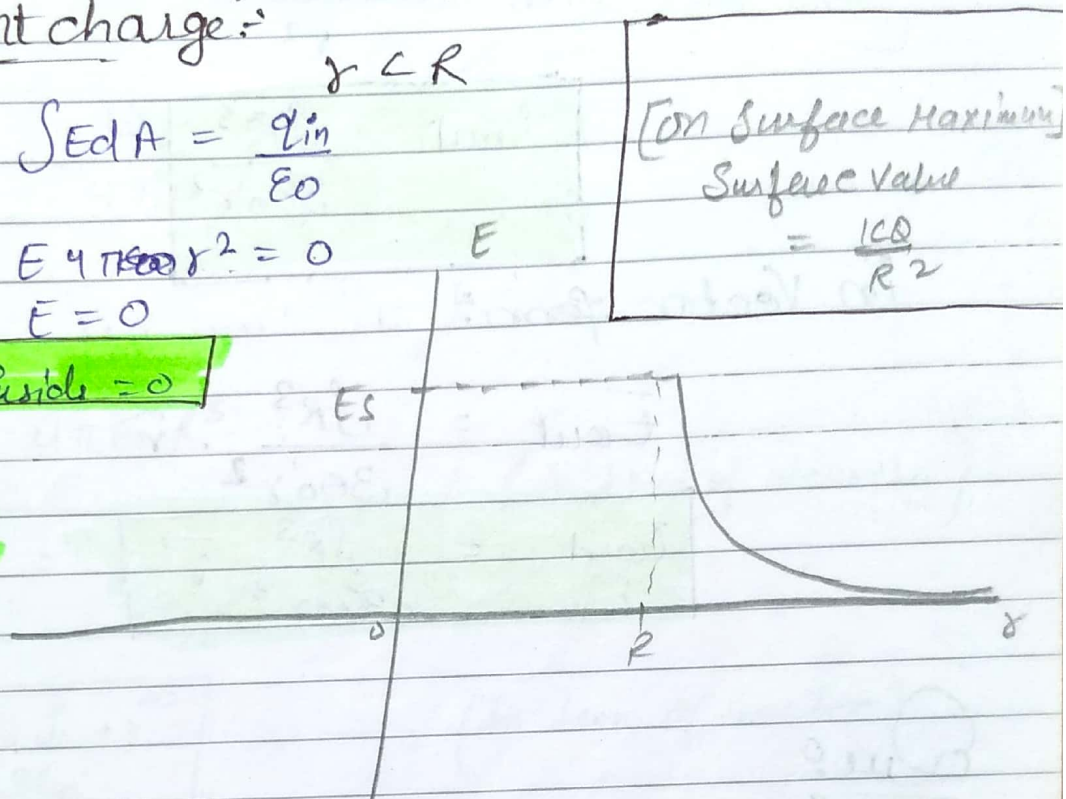 nt charge:-
r < R
∫EdA = qin / ε0
E 4πr² = 0
E = 0
inside = 0
[on Surface Maximum]
Surface Value
= KQ / R²
E
Es
0
R
r